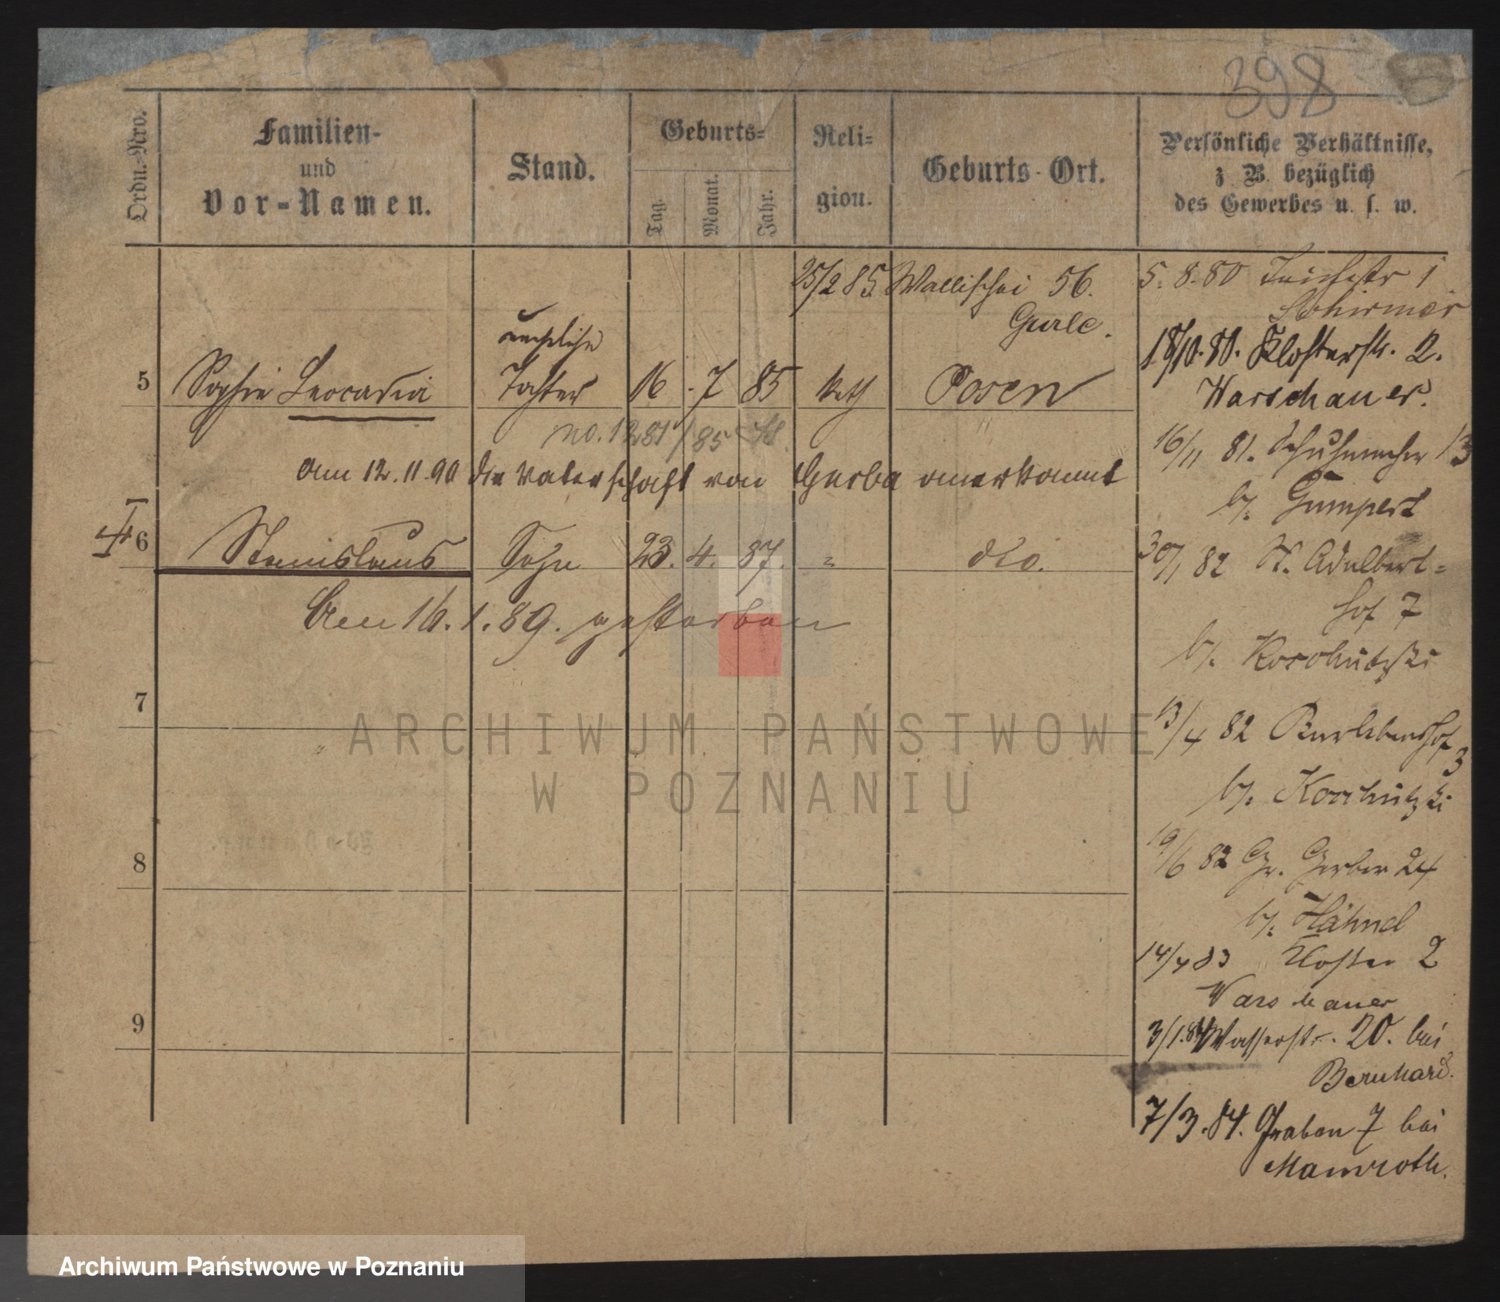 398
Ordn.-Nro.
Familien-
und
Vor-Namen.
Stand.
Geburts-
Tag.
Monat.
Jahr.
Reli-
gion.
Geburts-Ort.
Persönliche Verhältnisse,
z. B. bezüglich
des Gewerbes u. s. w.
25/2 85 Wallischei 56.
uneheliche
5 Sophie Leocadia Tochter 16 . 7 85 kath Posen
no. 1281/85
am 12.11.90 die Vaterschaft von Gerba anerkannt
6 Stanislaus Sohn 23. 4. 87. " dto.
Am 16.1.89. gestorben
7
8
9
5. 8. 80 1
Schirmer
18/10. 80. Klosterstr. 2.
Warschauer.
16/11 81. Schuhmacher 13
b/. Gumpert
30/1 82 St. Adalbert-
hof 7
b/.
13/4 82 3
b/.
19/6 82 Gr. Gerber 24
b/. Hähnel
14/4 83 Kloster 2
Warschauer
3/1. 84 Wasserstr. 20. bei
Bernhard.
7/3. 84. Graben 7 bei
Mamroth.
ARCHIWUM PAŃSTWOWE
W POZNANIU
Archiwum Państwowe w Poznaniu